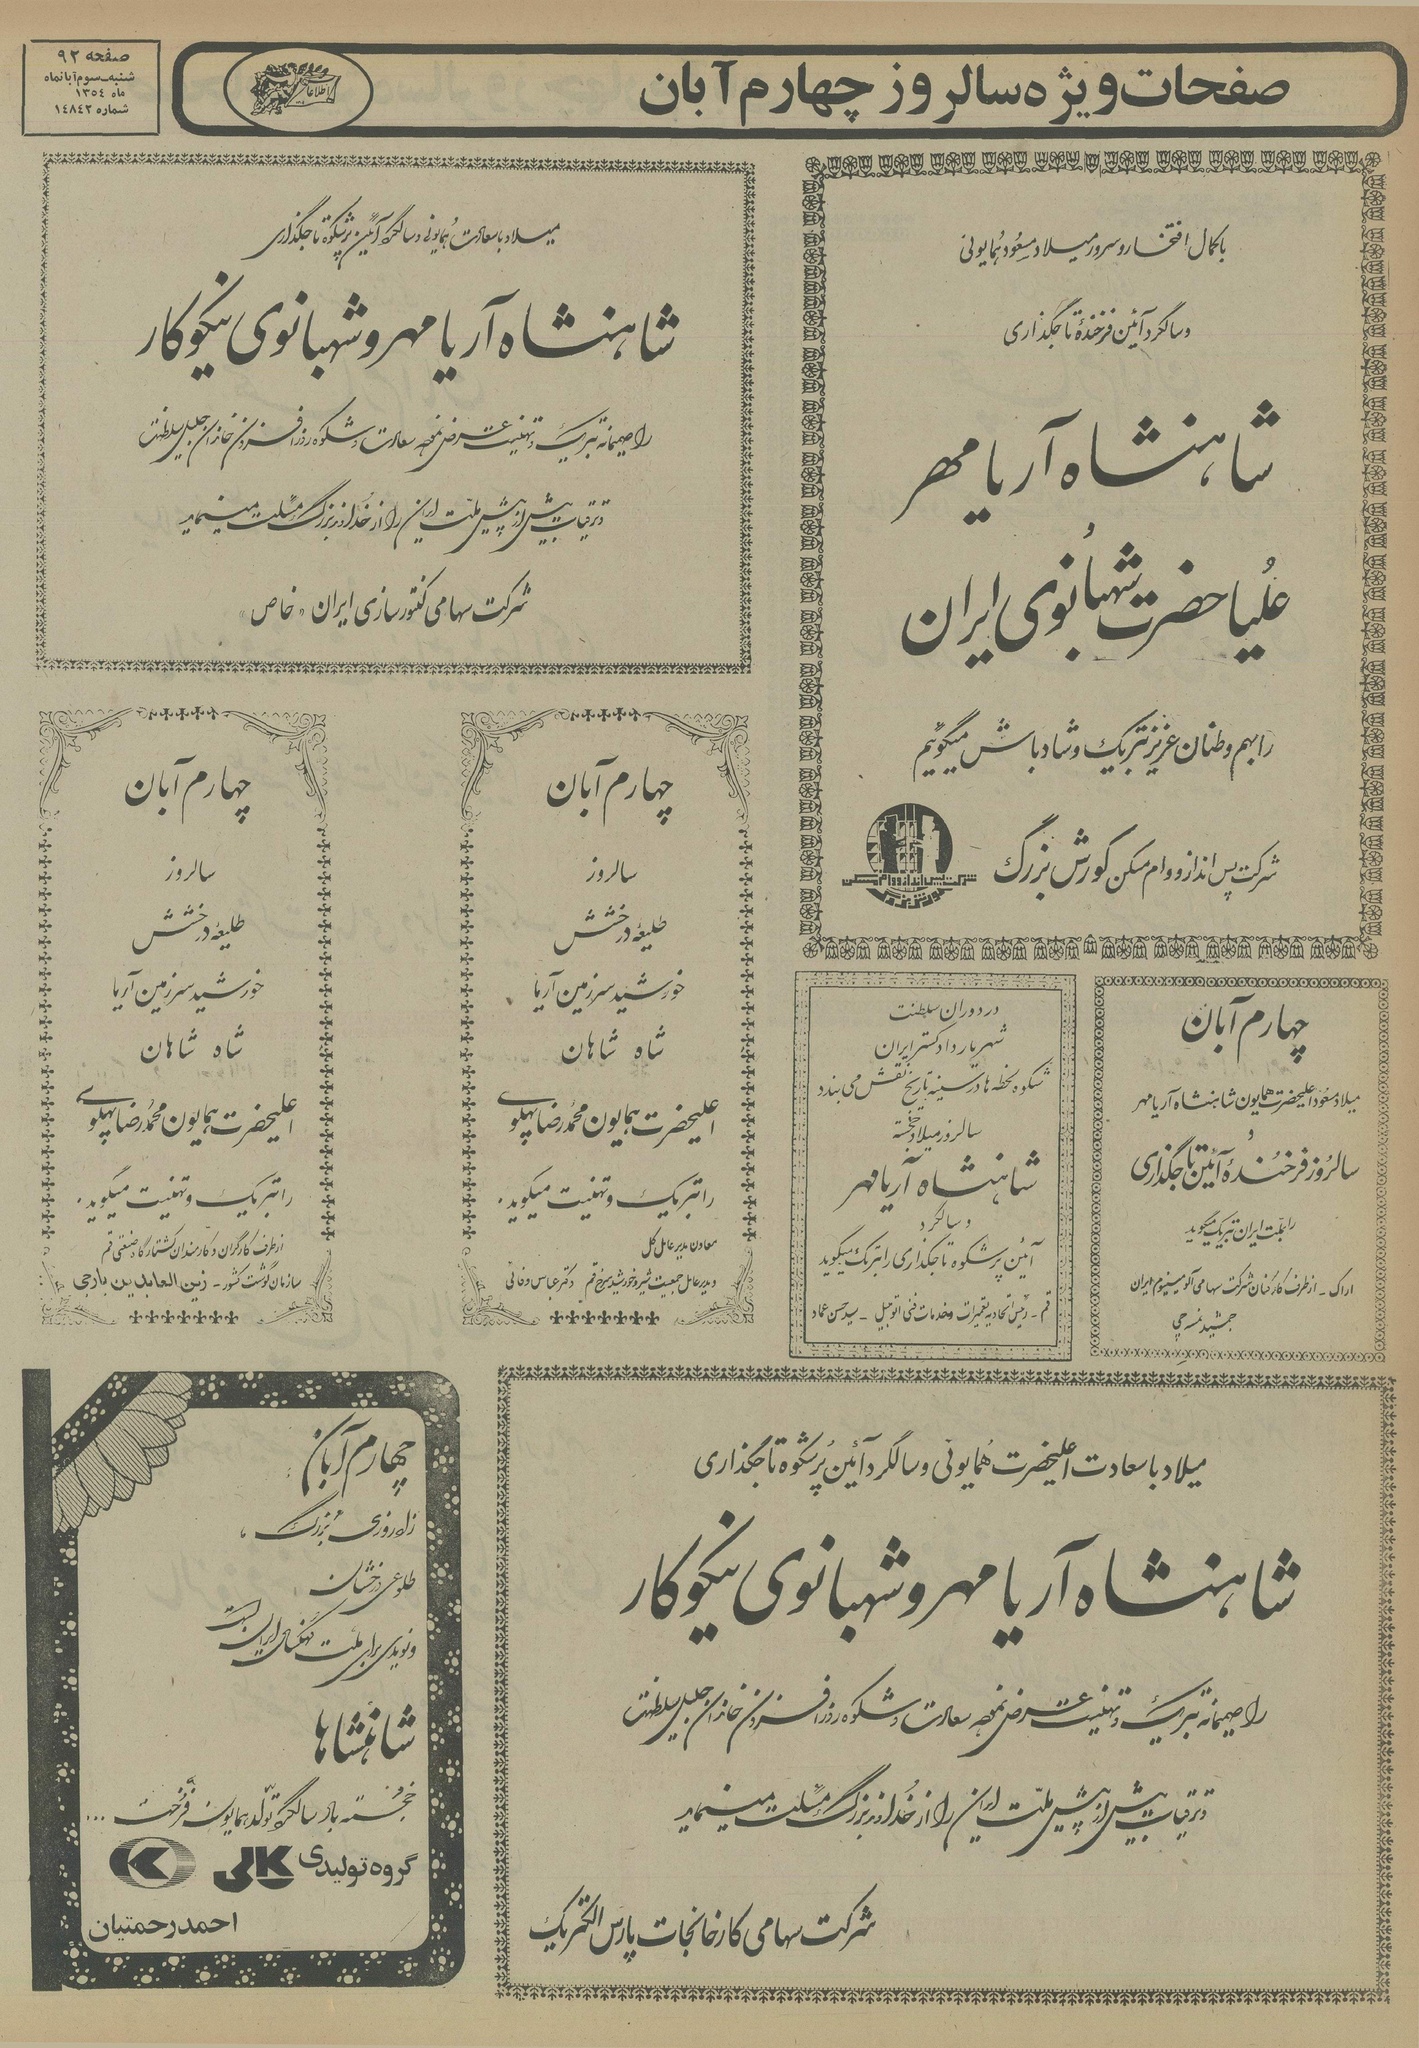 صفحات ویژه سالروز چهارم آبان
اطلاعات
صفحه ۹۲
شنبه سوم آبانماه
ماه ۱۳۵۴
شماره ۱۴۸۴۲
با کمال افتخار و سرور میلاد مسعود همایونی
و سالگرد آئین فرخنده تاجگذاری
شاهنشاه آریامهر
علیاحضرت شهبانوی ایران
را بهم وطنان عزیز تبریک و شادباش میگوئیم
شرکت پس انداز و وام مسکن کورش بزرگ
شرکت پس انداز و وام مسکن
کورش بزرگ
میلاد با سعادت همایونی و سالگرد آئین پرشکوه تاجگذاری
شاهنشاه آریامهر و شهبانوی نیکوکار
را صمیمانه تبریک و تهنیت عرض نموده سعادت و شکوه روزافزون خاندان جلیل سلطنت
و ترقیات بیش از پیش ملت ایران را از خداوند بزرگ مسئلت مینماید
شرکت سهامی کنتورسازی ایران «خاص»
چهارم آبان
سالروز
طلیعه درخشش
خورشید سرزمین آریا
شاه شاهان
اعلیحضرت همایون محمدرضا پهلوی
را تبریک و تهنیت میگوید.
معاون مدیر عامل کل
و مدیر عامل جمعیت شیر و خورشید سرخ قم دکتر عباس وفائی
چهارم آبان
سالروز
طلیعه درخشش
خورشید سرزمین آریا
شاه شاهان
اعلیحضرت همایون محمدرضا پهلوی
را تبریک و تهنیت میگوید.
از طرف کارگران و کارمندان کشتارگاه صنعتی قم
سازمان گوشت کشور ـ زین العابدین یارحی
چهارم آبان
میلاد مسعود اعلیحضرت همایون شاهنشاه آریامهر
و
سالروز فرخنده آئین تاجگذاری
را بملت ایران تبریک میگوید
اراک ـ از طرف کارکنان شرکت سهامی آلومینیوم ایران
جمشید
در دوران سلطنت
شهریار دادگستر ایران
شکوه لحظه ها در سینه تاریخ نقش می بندد
سالروز میلاد خجسته
شاهنشاه آریامهر
و سالگرد
آئین پرشکوه تاجگذاری را تبریک میگوید
قم ـ رئیس اتحادیه تعمیرات و خدمات فنی اتومبیل ـ سید حسن عماد
میلاد با سعادت اعلیحضرت همایونی و سالگرد آئین پرشکوه تاجگذاری
شاهنشاه آریامهر و شهبانوی نیکوکار
را صمیمانه تبریک و تهنیت عرض نموده سعادت و شکوه روزافزون خاندان جلیل سلطنت
و ترقیات بیش از پیش ملت ایران را از خداوند بزرگ مسئلت مینماید
شرکت سهامی کارخانجات پارس الکتریک
چهارم آبان
زادروزی بزرگ،
طلوعی درخشان
و نویدی برای ملت کهنسال ایران است
شاهنشاها
خجسته باد سالگرد تولد همایون فرخت ...
گروه تولیدی
احمد رحمتیان